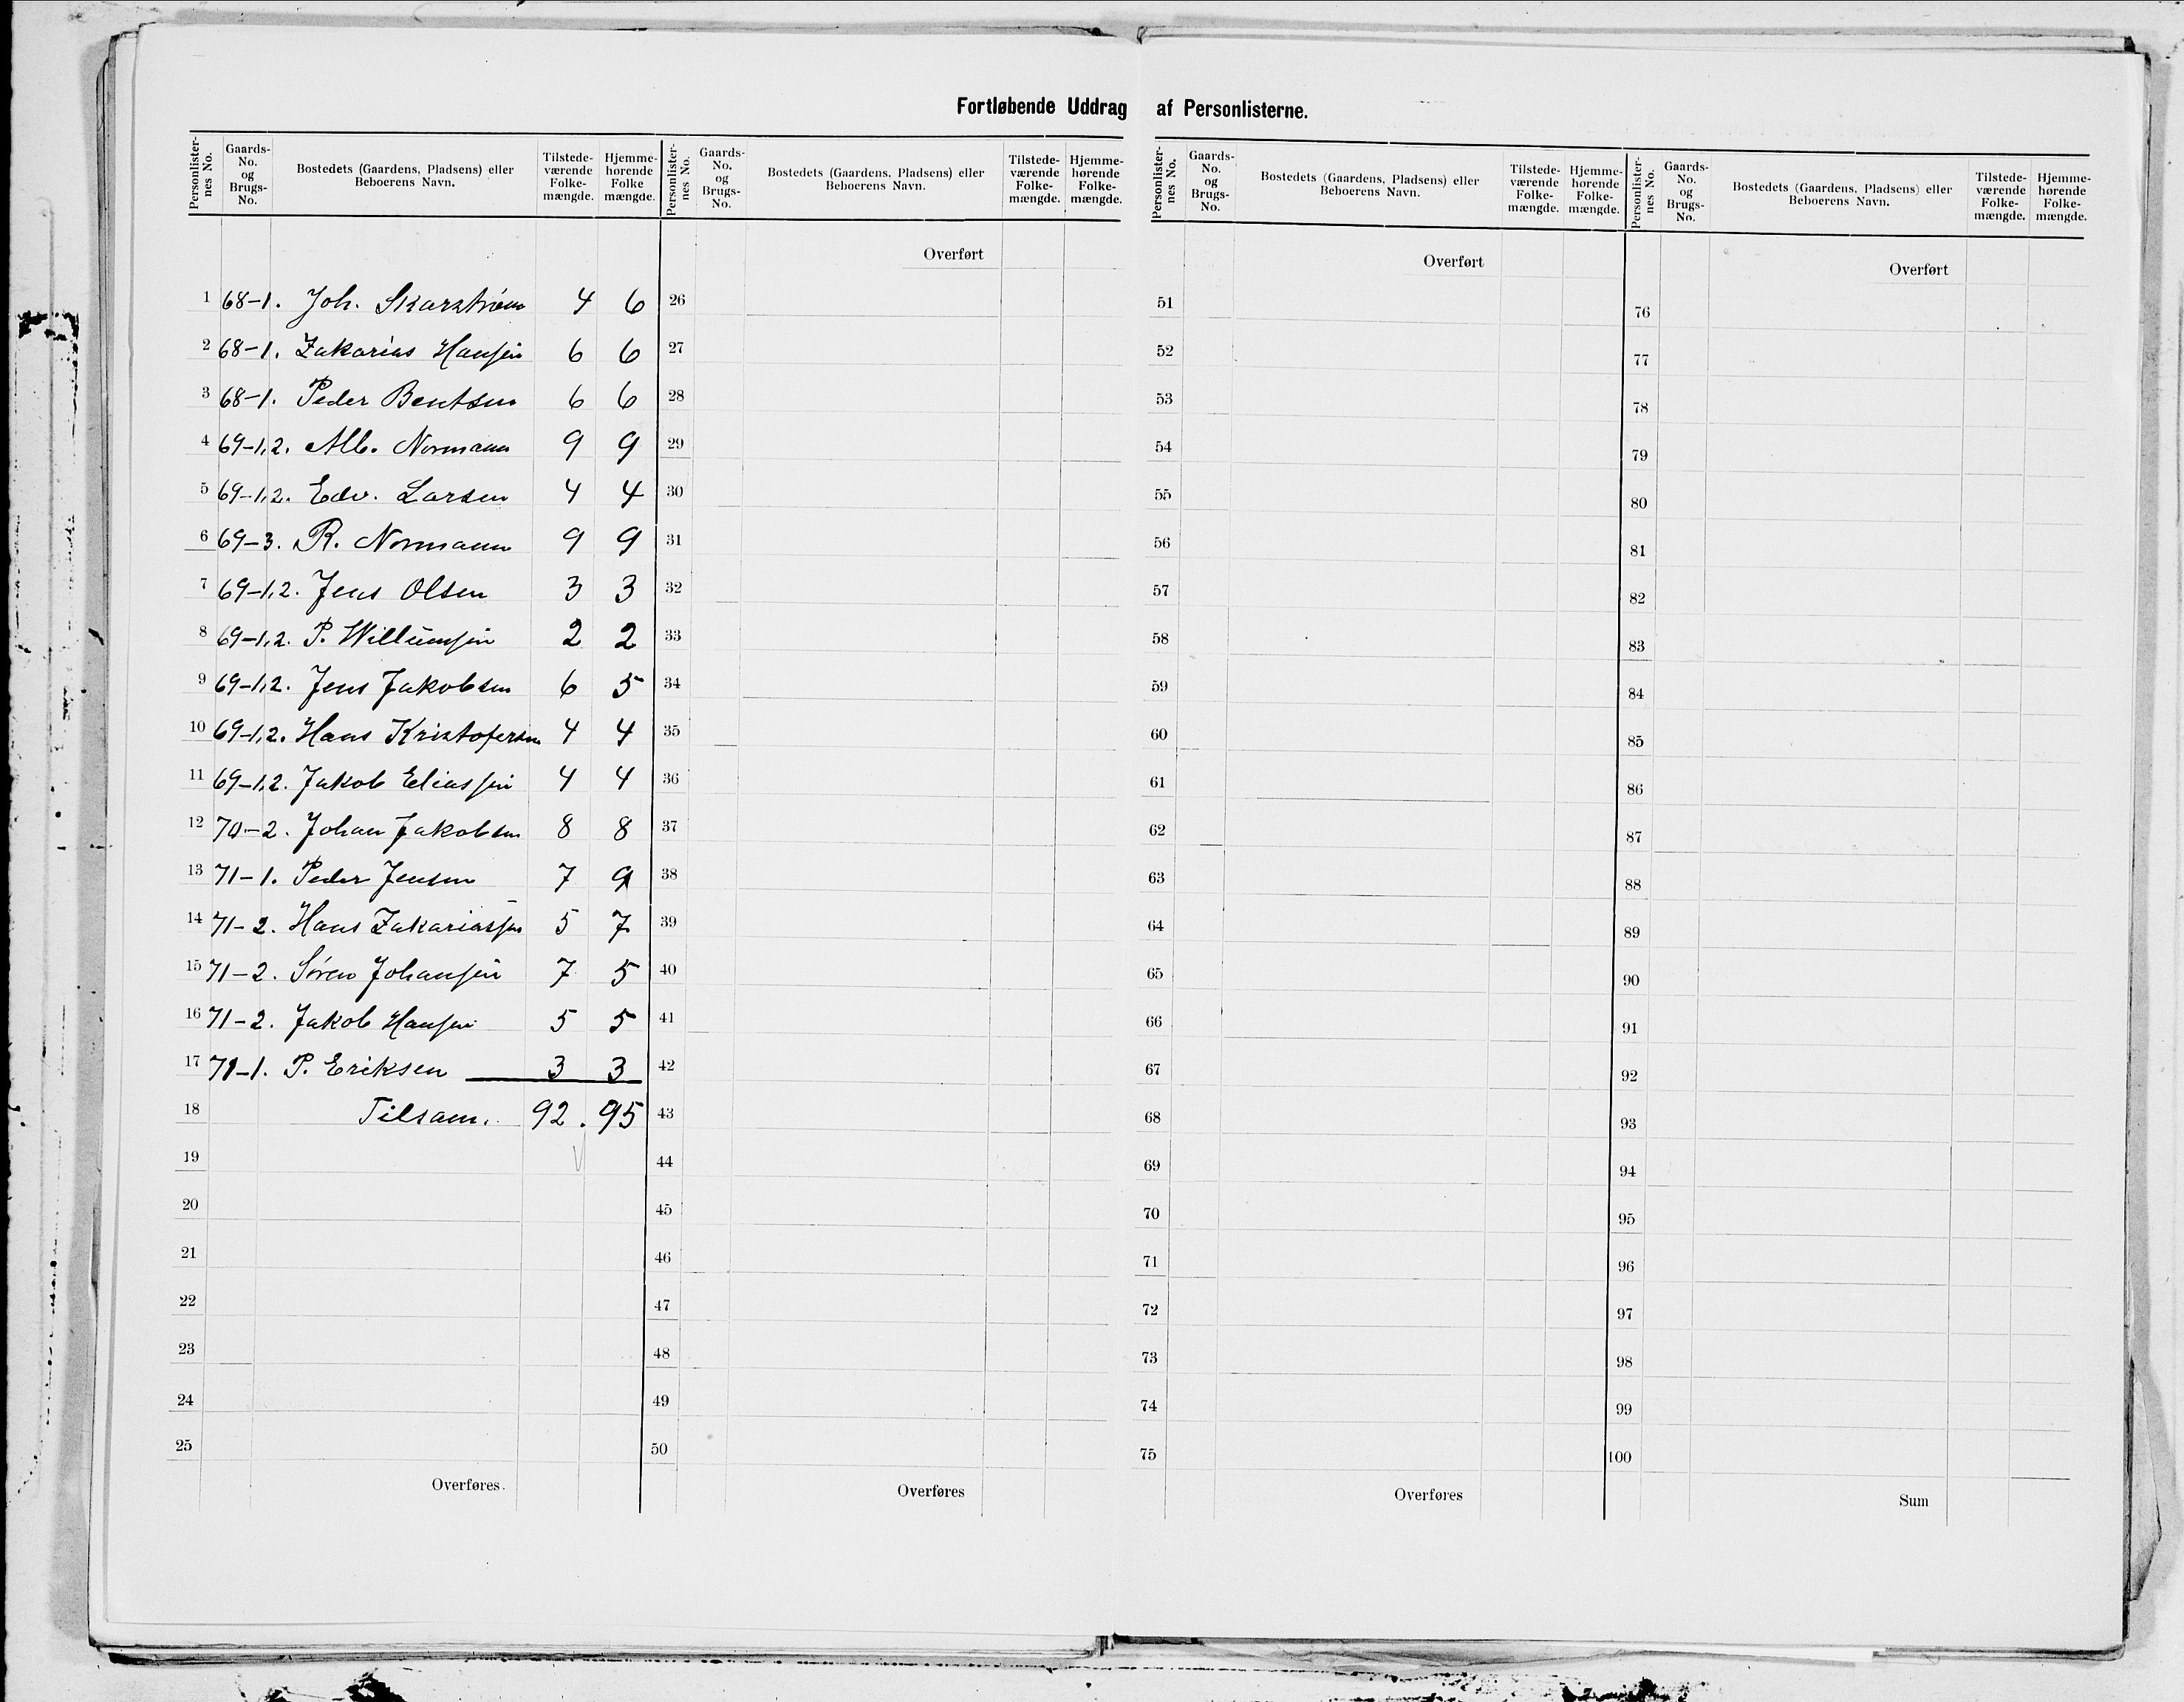 Fortløbende Uddrag af Personlisterne.
Personlister-nes No. Gaards-No. og Brugs-No. Bostedets (Gaardens, Pladsens) eller Beboerens Navn. Tilstede-værende Folke-mængde. Hjemme-hørende Folke mængde.
1 68-1. Joh. Skarstrøm 4 6
2 68-1. Zakarias Hansen 6 6
3 68-1. Peder Bentsen 6 6
4 69-1,2. Alb. Normann 9 9
5 69-1,2. Edv. Larsen 4 4
6 69-3. R. Normann 9 9
7 69-1,2. Jens Olsen 3 3
8 69-1,2. P. Willumsen 2 2
9 69-1,2. Jens Jakobsen 6 5
10 69-1,2. Hans Kristofersen 4 4
11 69-1,2. Jakob Eliassen 4 4
12 70-2. Johan Jakobsen 8 8
13 71-1. Peder Jensen 7 9
14 71-2. Hans Zakariassen 5 7
15 71-2. Søren Johansen 7 5
16 71-2. Jakob Hansen 5 5
17 71-1. P. Eriksen 3 3
18 Tilsam. 92. 95
19
20
21
22
23
24
25
Overføres.
Personlister-nes No. Gaards-No. og Brugs-No. Bostedets (Gaardens, Pladsens) eller Beboerens Navn. Tilstede-værende Folke-mængde. Hjemme-hørende Folke-mængde.
Overført
26
27
28
29
30
31
32
33
34
35
36
37
38
39
40
41
42
43
44
45
46
47
48
49
50
Overføres
Personlister-nes No. Gaards-No. og Brugs-No. Bostedets (Gaardens, Pladsens) eller Beboerens Navn. Tilstede-værende Folke-mængde. Hjemme-hørende Folke-mængde.
Overført
51
52
53
54
55
56
57
58
59
60
61
62
63
64
65
66
67
68
69
70
71
72
73
74
75
Overføres
Personlister-nes No. Gaards-No. og Brugs-No. Bostedets (Gaardens, Pladsens) eller Beboerens Navn. Tilstede-værende Folke-mængde. Hjemme-hørende Folke-mængde.
Overført
76
77
78
79
80
81
82
83
84
85
86
87
88
89
90
91
92
93
94
95
96
97
98
99
100
Sum